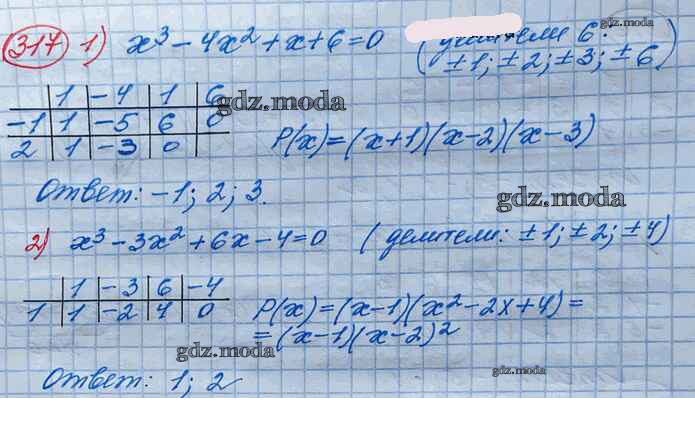 317 1) x³ - 4x² + x + 6 = 0 (делители 6:
± 1; ± 2; ± 3; ± 6)
1 -4 1 6
-1 1 -5 6 0
2 1 -3 0
gdz.moda
P(x) = (x+1)(x-2)(x-3)
Ответ: -1; 2; 3.
gdz.moda
2) x³ - 3x² + 6x - 4 = 0 (делители: ± 1; ± 2; ± 4)
1 -3 6 -4
1 1 -2 4 0
P(x) = (x-1)(x² - 2x + 4) =
= (x-1)(x-2)²
gdz.moda
Ответ: 1; 2
gdz.moda